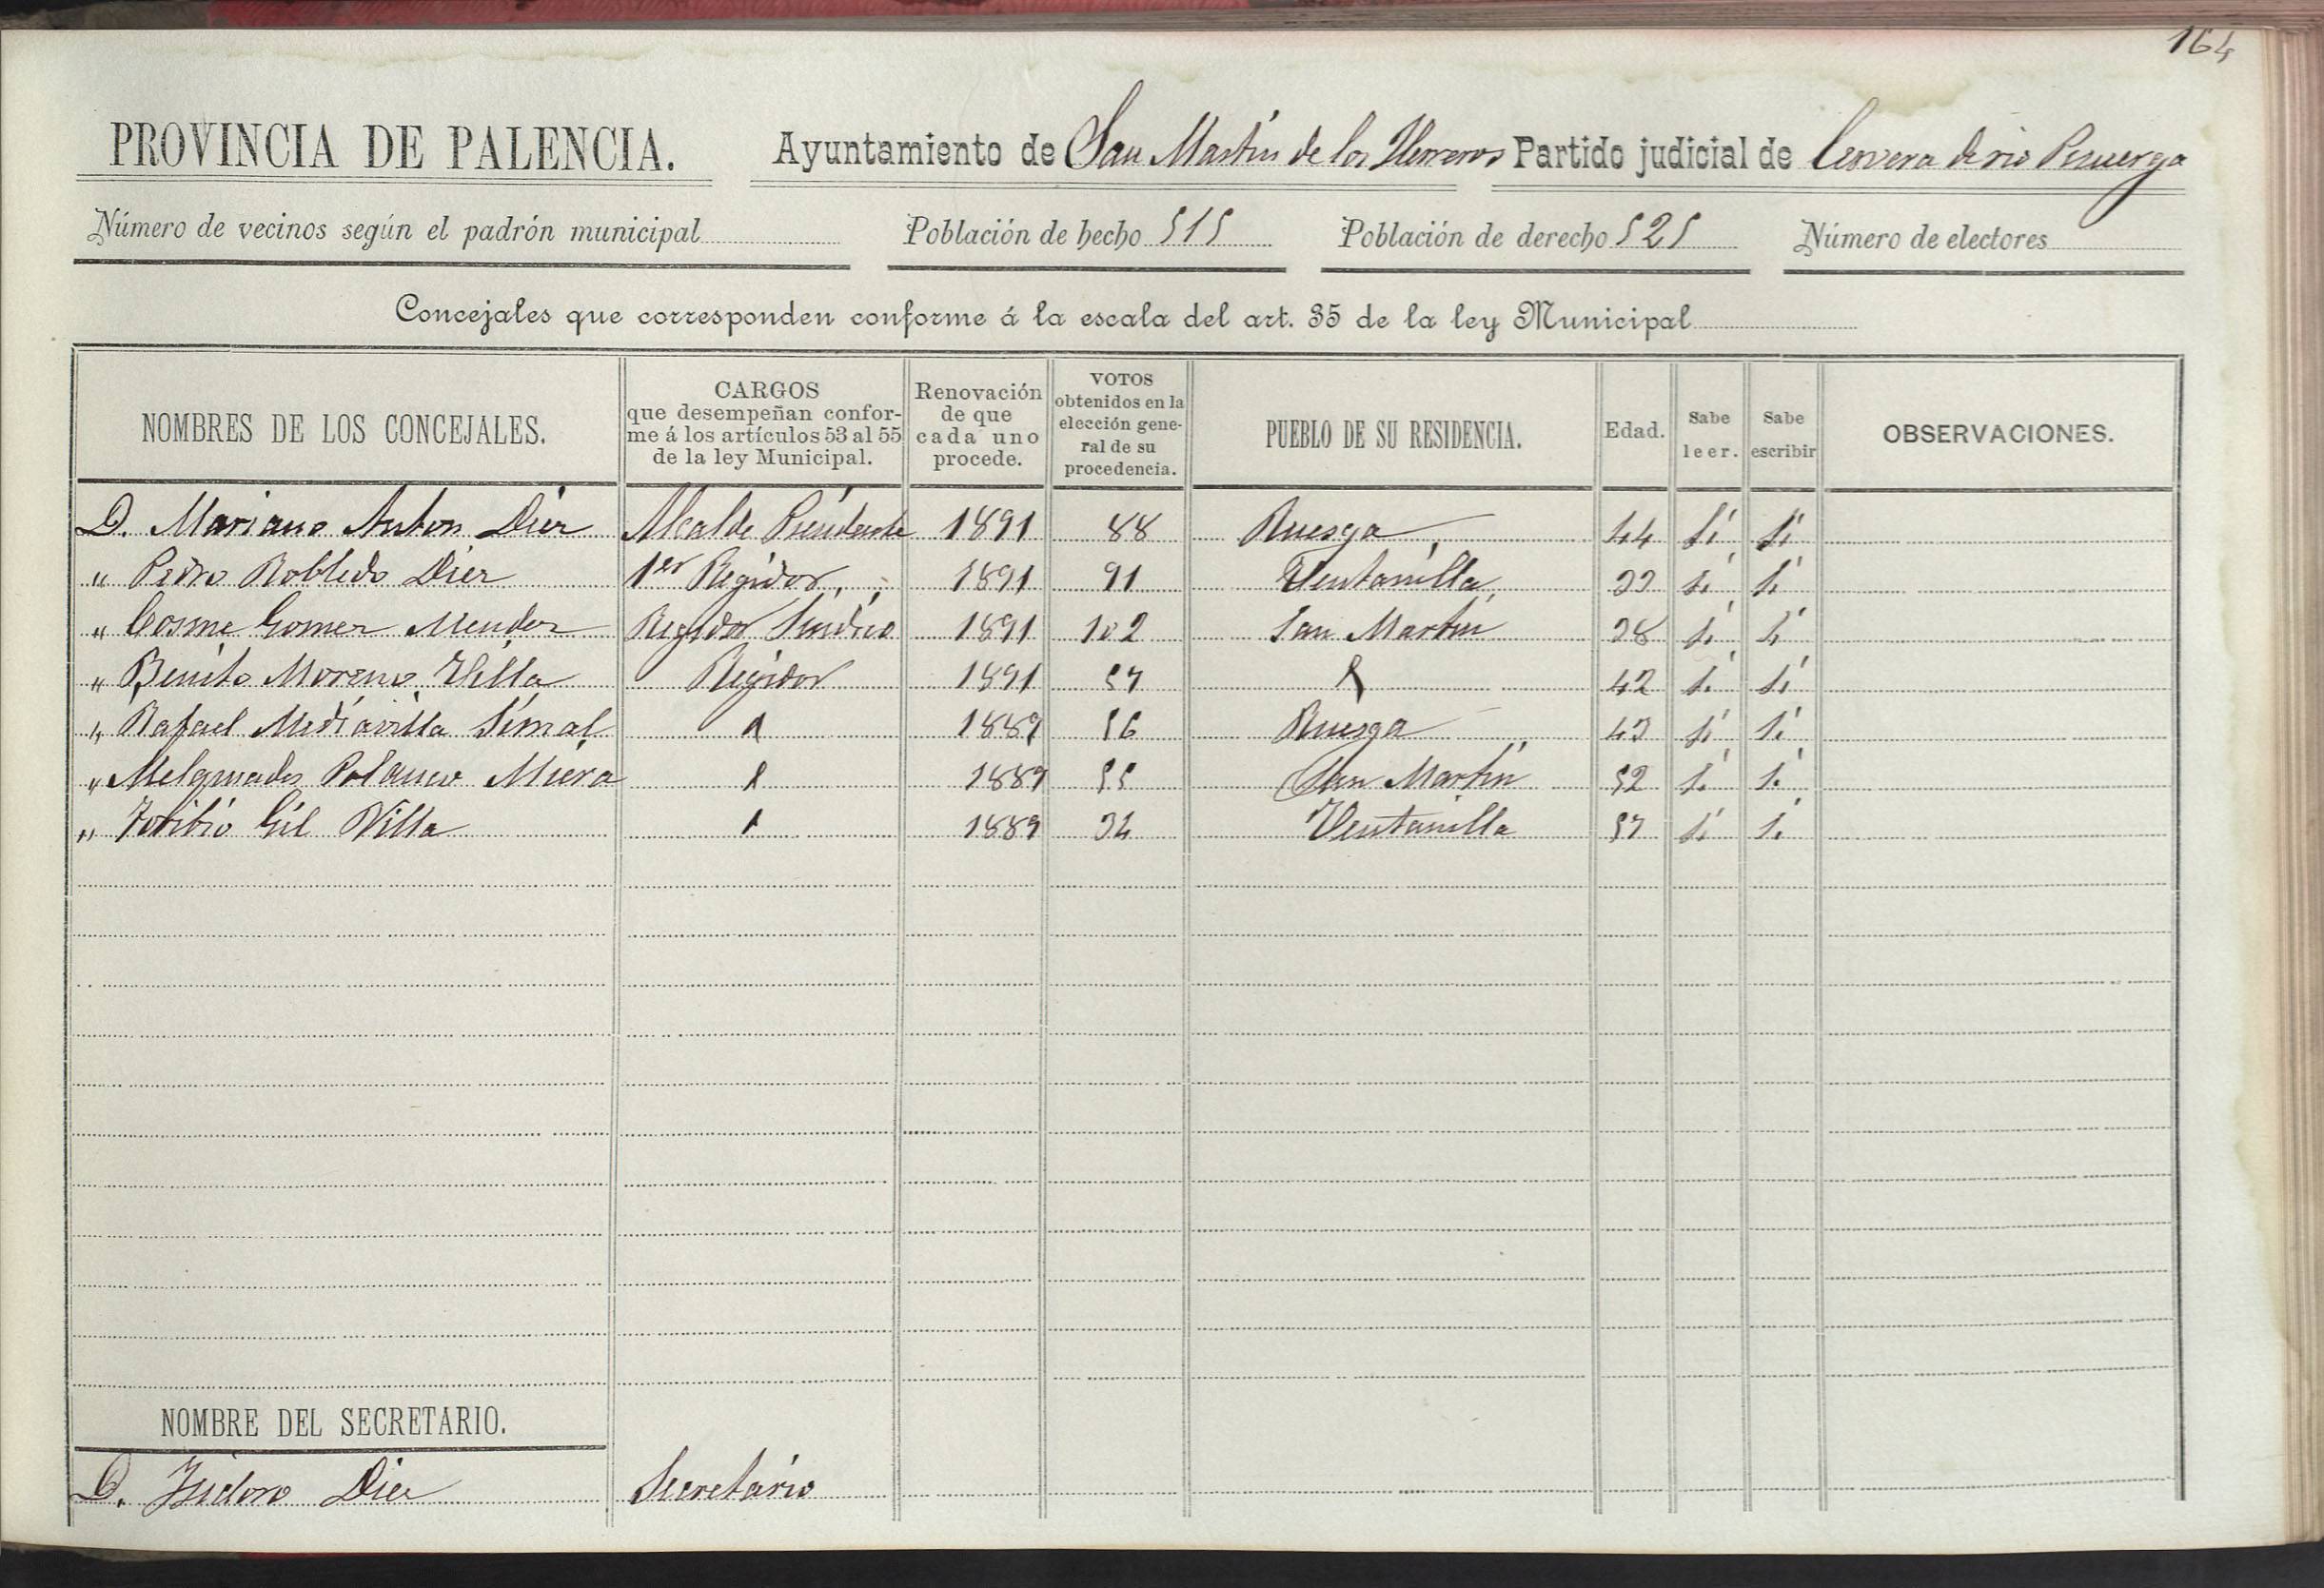 164
PROVINCIA DE PALENCIA. Ayuntamiento de San Martín de los Herreros Partido judicial de Cervera de rio Pisuerga
Número de vecinos según el padrón municipal Población de hecho 515 Población de derecho 525 Número de electores
Concejales que corresponden conforme á la escala del art. 35 de la ley Municipal
NOMBRES DE LOS CONCEJALES. CARGOS que desempeñan conforme á los artículos 53 al 55 de la ley Municipal. Renovación de que cada uno procede. VOTOS obtenidos en la elección general de su procedencia. PUEBLO DE SU RESIDENCIA. Edad. Sabe leer. Sabe escribir OBSERVACIONES.
D. Mariano Anton Diez Alcalde Presidente 1891 88 Ruesga 44 Sí Sí
" Pedro Robledo Diez 1er Regidor 1891 91 Ventanilla 33 Sí Sí
" Cosme Gomez Mendez Regidor Síndico 1891 102 San Martín 38 Sí Sí
" Benito Moreno Villa Regidor 1891 57 " 42 Sí Sí
" Rafael Mediavilla Simal " 1889 56 Ruesga 43 Sí Sí
" Melquiades Polanco Miera " 1889 55 San Martín 52 Sí Sí
" Toribio Gil Villa " 1889 34 Ventanilla 57 Sí Sí
NOMBRE DEL SECRETARIO.
D. Isidoro Diez Secretario